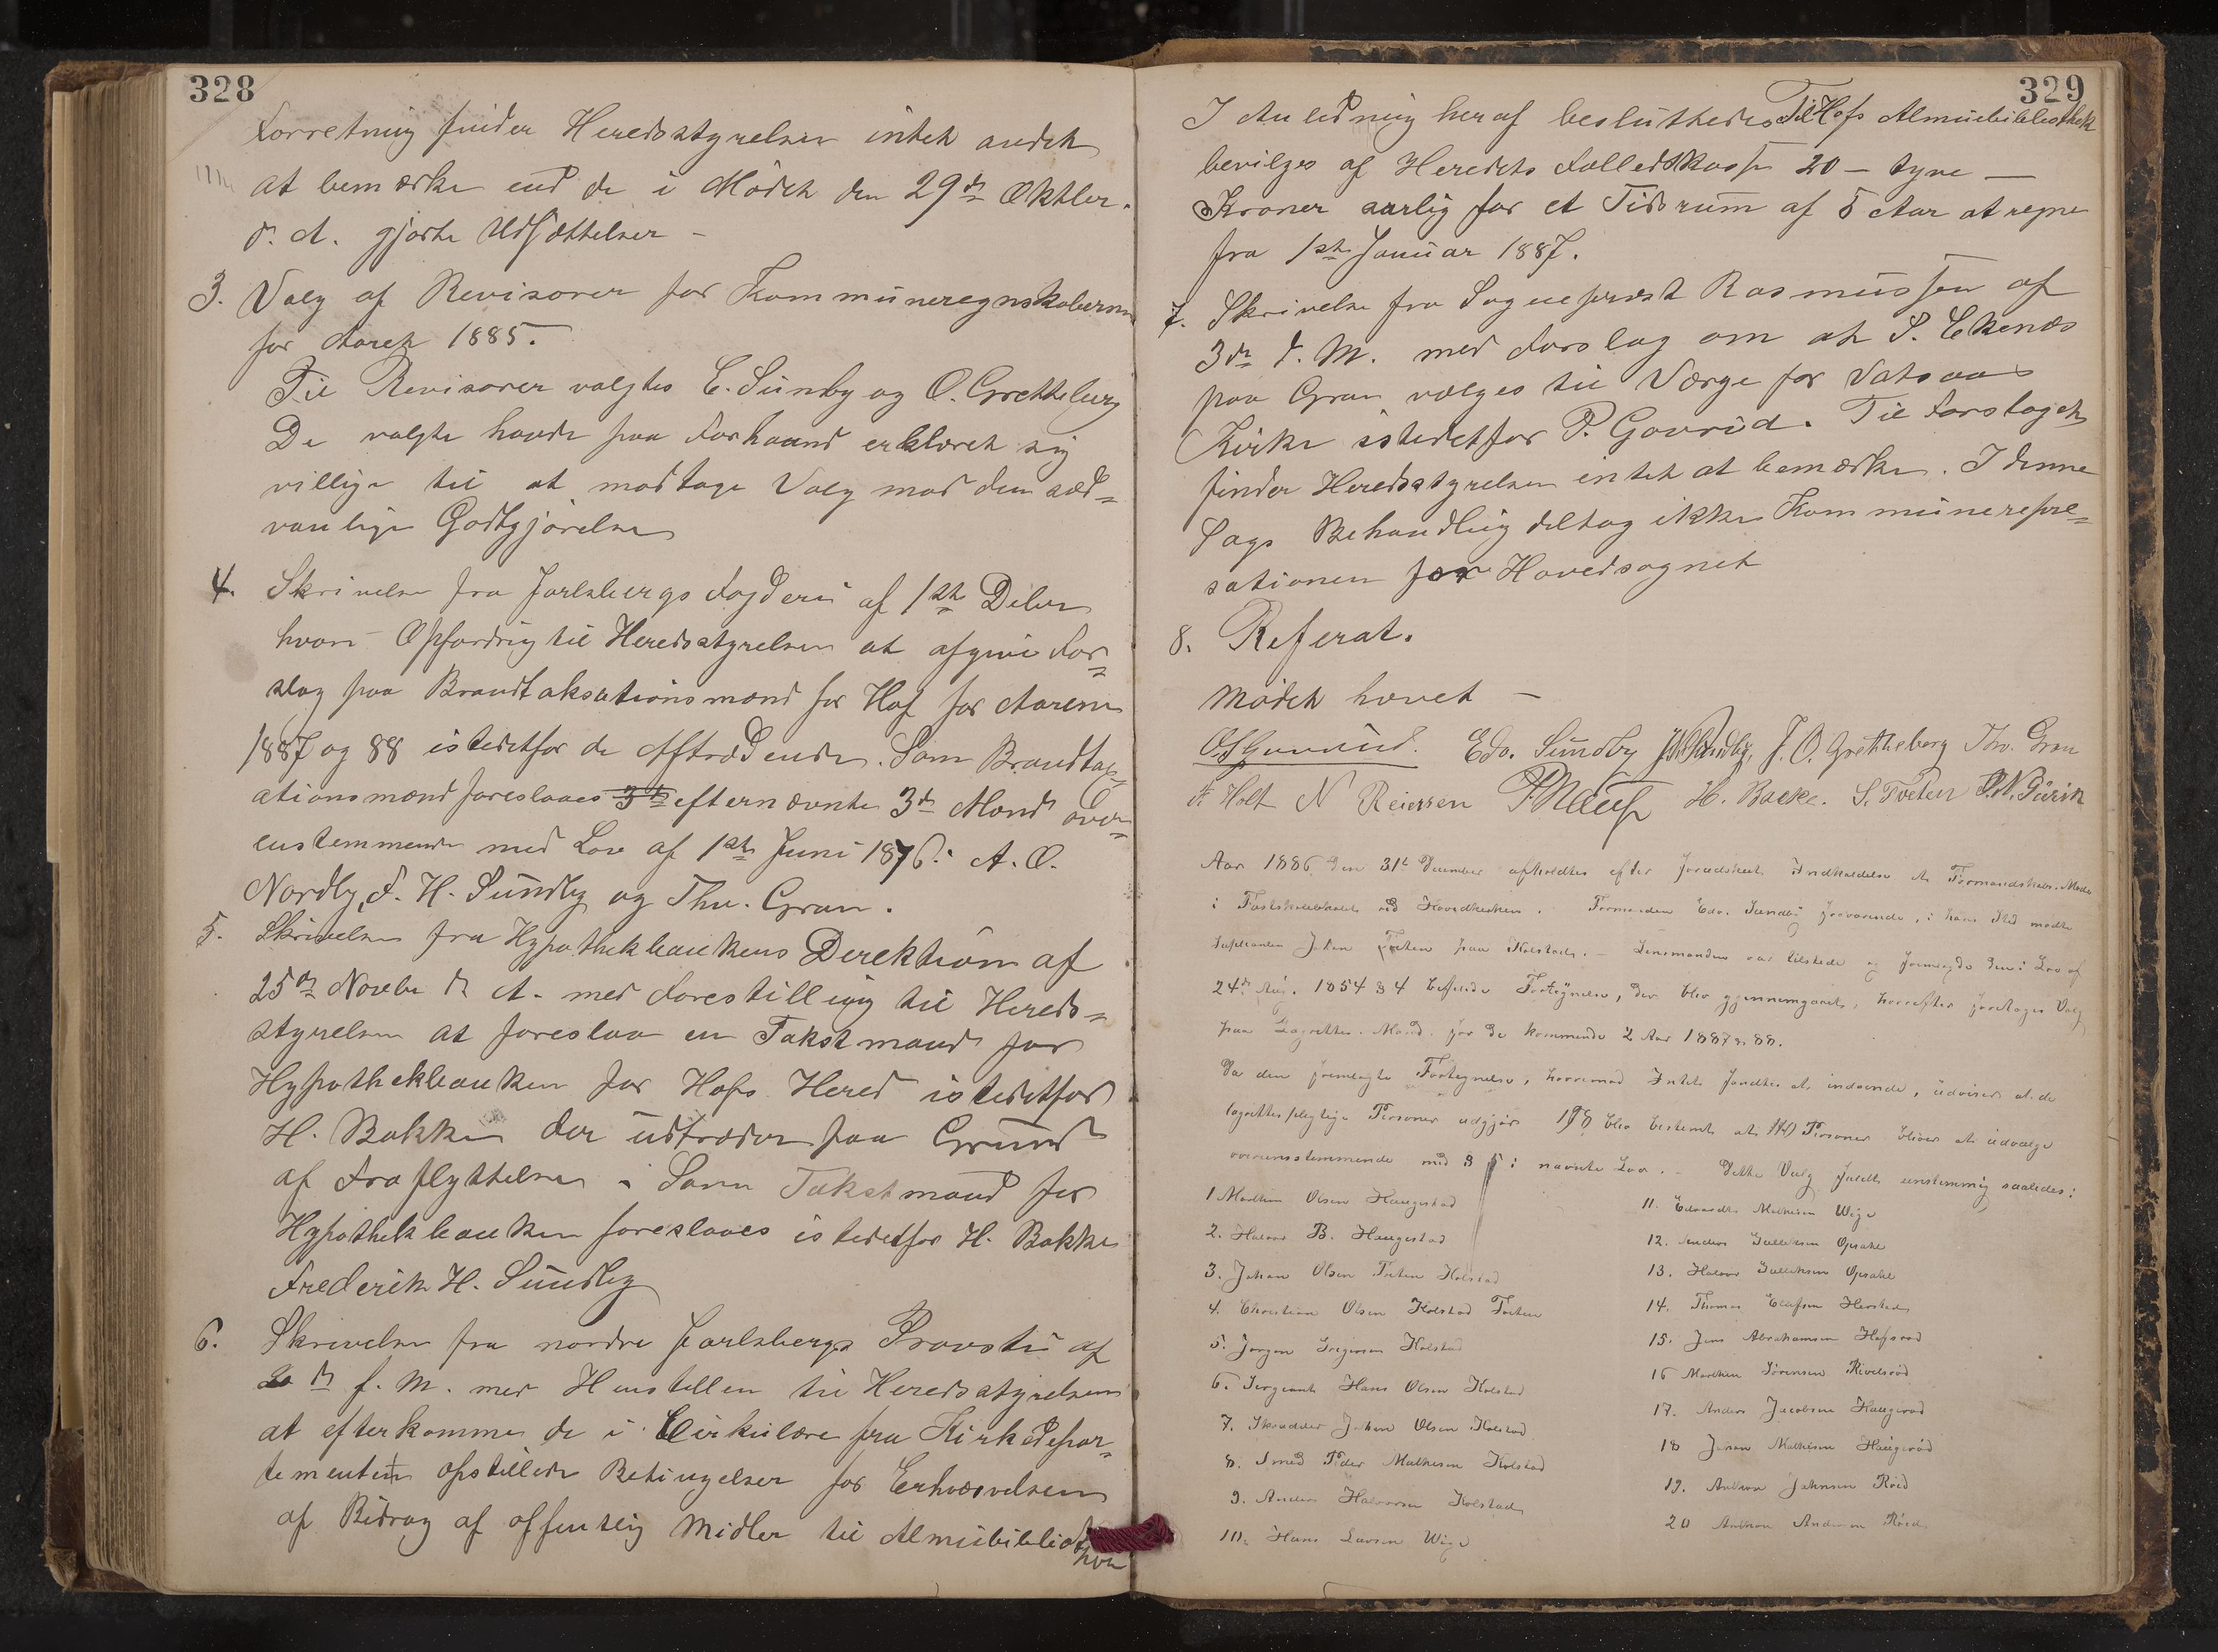 328
Forretning finder Heredsstyrelsen intet andet
at bemærke end de i Mødet den 29de Oktbr.
d. A. gjorte Udsættelser –
3. Valg af Revisorer for Kommuneregnskaberne
for Aaret 1885.
Til Revisorer valgtes E. Sundby og O. Gretteberg
De valgte havde paa Forhaand erklæret sig
villige til at modtage Valg mod den sæd=
vanlige Godtgjørelse
4. Skrivelse fra Jarlsbergs Fogderi af 1ste Debr
hvori Opfordrig til Heredsstyrelsen at afgive For=
slag paa Brandtaksationsmænd for Hof for Aarene
1887 og 88 istedetfor de Aftrædende. Som Brandtax=
ationsmænd foreslaaes efternævnte 3de Mænd over=
ensstemmende med Lov af 1ste Juni 1876: A. O.
Nordby, F. H. Sundby og Thv. Gran.
5. Skrivelse fra Hypothekbankens Direktion af
25de Novbr d. A. med Forestilling til Hereds=
styrelsen at foreslaa en Takstmand for
Hypothekbanken for Hofs Hered istedetfor
H. Bakke der udtræder paa Grund
af Fraflyttelse. Som Takstmand for
Hypothekbanken foreslaaes istedetfor H. Bakke
Frederik H. Sundby
6. Skrivelse fra nordre Jarlsbergs Provsti af
f. M. med Henstillen til Heredsstyrelsen
at efterkomme de i Cirkulære fra Kirkedepar=
tementet opstillede Betingelser for Erhvervelsen
af Bidrag af offentlig Midler til Almuebiblioth
329
I Anledning heraf besluttedes Til Hofs Almuebibliothek
bevilges af Heredets Fælledskasse 20 – tyve —
Kroner aarlig for et Tidsrum af 5 Aar at regne
fra 1ste Januar 1887.
7. Skrivelse fra Sogneprest Rasmussen af
3de d. M. med Forslag om at S. Ekenæs
paa Gran vælges til Værge for Vatsaas
Kirke istedetfor P. Gaurud. Til Forslaget
finder Heredsstyrelsen intet at bemærke. I denne
Sags Behandling deltog ikke Kommunerepre=
sationen for Hovedsognet
8. Referat.
Mødet hævet –
Edv. Sundby J. O. Grettheberg Thv. Gran
F. Holt N Reiersen H. Backe. S. Tveten
Aar 1886 den 31te December afholdtes efter foregaaende Indkaldelse et Formandskabs-Møde
i Fastskolelokalet ved Hovedkirken. Formanden Edv. Sundby fraværende, i hans Sted mødte
Supleanten Johan Tveten paa Kolstad. – Lensmanden var tilstede og fremlagde den i Lov af
24de Aug. 1854 § 4 befalede Fortegnelse, der blev gjennemgaaet, hvorefter foretoges Valg
paa Lagrettes-Mænd for de kommende 2 Aar 1887 & 88.
Da den fremlagte Fortegnelse, hvorimod Intet fandtes at indvende, udviser at de
lagrettespligtige Personer udgjør 198 blev bestemt at Personer bliver at udvælge
overensstemmende med § 5 i nævnte Lov. – Dette Valg faldt enstemmig saaledes:
1 Mathias Olsen Haugestad
2. Halvor B. Haugestad
3. Johan Olsen Tveten Kolstad
4. Christian Olsen Kolstad Tveten
5. Jørgen Gregersen Kolstad
6. Sergeant Hans Olsen Kolstad
7. Skrædder Johan Olsen Kolstad
8. Smed Peder Mathisen Kolstad
9. Anders Halvorsen Kolstad
10. Hans Larsen Wige
11. Edvardt Mathisen Wige
12. Anders Gulliksen Opsahl
13. Halvor Gulliksen Opsahl
14. Thomas Ellefsen Herstad
15. Jens Abrahamsen Hofsrød
16 Mathias Sørensen Kivelsrød
17. Anders Jacobsen Haugerød
18 Johan Mathisen Haugerød
19. Anders Johnsen Røed
20 Anthon Andersen Røed